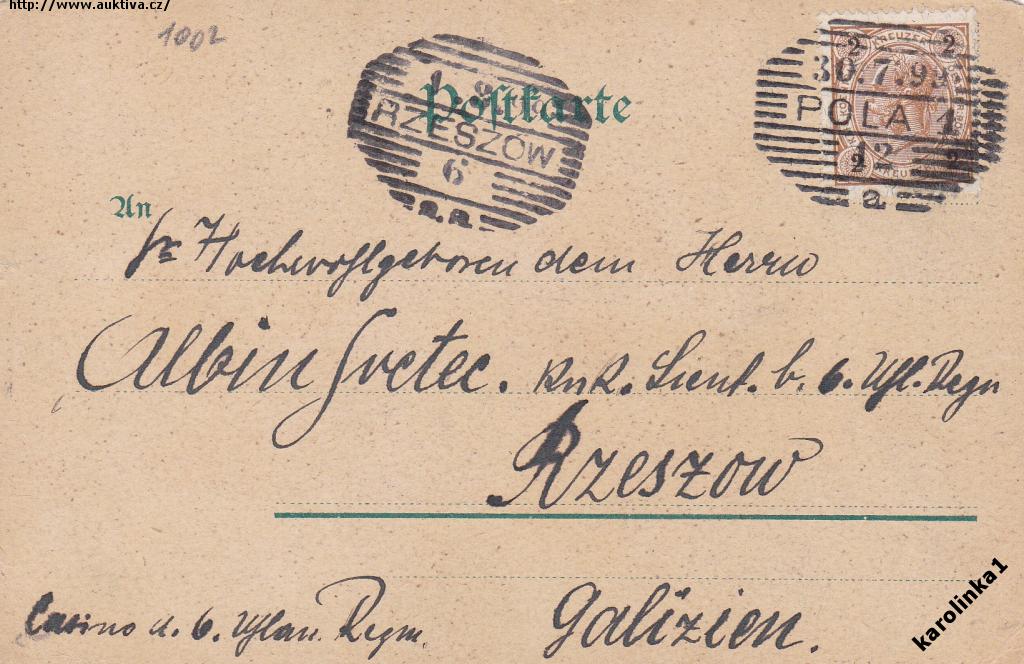 http://www.auktiva.cz/
1002
2 KREUZER 2
30.7.99
POLA 1
12
2 2
a
1 8
RZESZÓW
6
a.a
Postkarte
An
Sr Hochwohlgeboren dem Herrn
Albin Svetec. k u k. Lieut. b. 6. Uhl. Regm
Rzeszow
Casino d. 6. Uhlan. Regm.
Galizien.
karolinka1